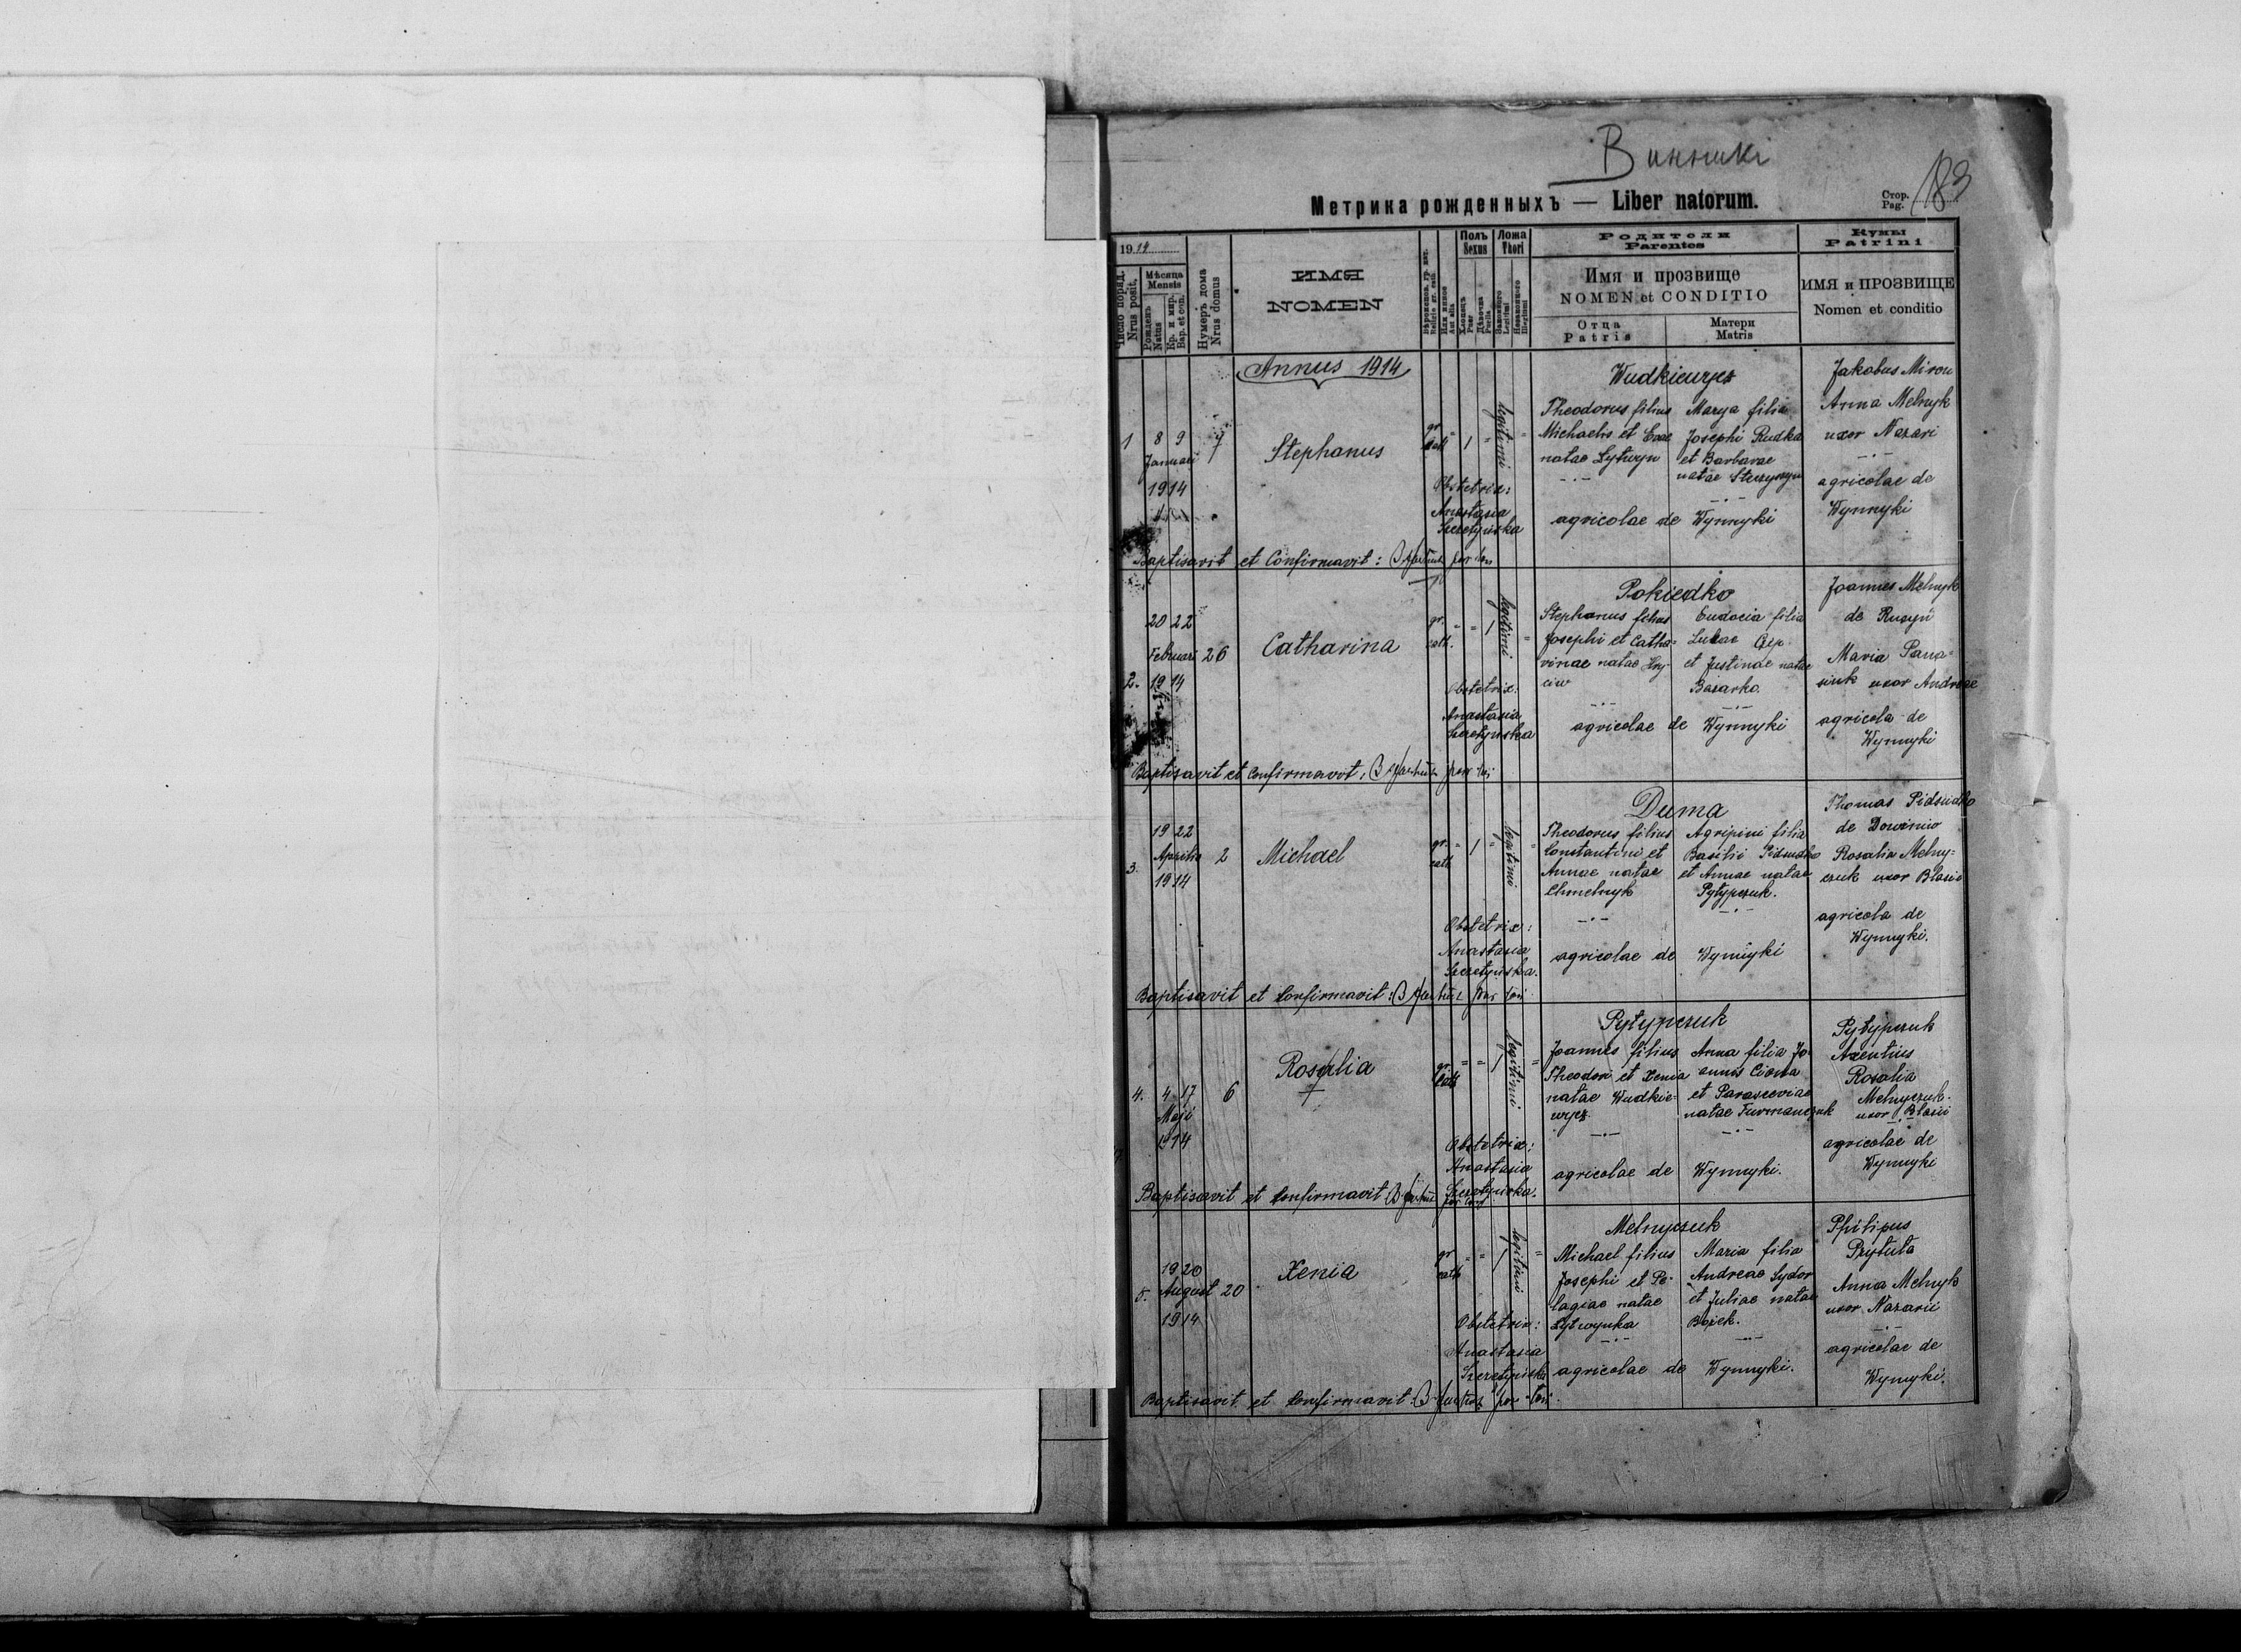 Винники
Метрика рожденныхъ — Liber natorum.
Стор. Pag. 183
1914
Число поряд. Nrus posit.
Мѣсяца Mensis
Рожденъ Natus
Кр. и мир. Bap. et con.
Нумеръ дома Nrus domus
ИМЯ
NOMEN
Полъ Sexus
Хлопецъ Puer
Дѣвочка Puella
Ложа Thori
Законного Legitimi
Незаконного Illegitimi
Родители
Parentes
Имя и прозвище
NOMEN et CONDITIO
Отца Patris
Матери Matris
Кумы
Patrini
ИМЯ и ПРОЗВИЩЕ
Nomen et conditio
Annus 1914
1
8 9
Januari
1914
Stephanus
gr. cath
1
legitimi
Obstetrix:
Anastasia
Wudkiewycz
Theodorus filius
Michaelis et Evae
natae Lytwyn
Marya filia
Josephi Rudka
et Barbarae
natae
agricolae de Wynnyki
Jakobus Miron
Anna Melnyk
uxor Nazari
agricolae de
Wynnyki
Baptisavit et Confirmavit:
2.
20 22
Februari
1914
26
Catharina
gr. cath.
1
legitimi
Obstetrix:
Anastasia
Pokiedko
Stephanus filius
Josephi et Catha-
rinae natae Hry-
ciw
Eudocia filia
Lukae
et Justinae natae
Bazarko
agricolae de Wynnyki
Joannes Melnyk
de
Maria Pana-
siuk uxor Andreae
agricola de
Wynnyki
Baptisavit et Confirmavit:
3.
19 22
Aprilis
1914
2
Michael
gr. cath
1
legitimi
Obstetrix:
Anastasia
Duma
Theodorus filius
Constantini et
Annae natae
Chmelnyk
Agripini filia
Basilii
et Annae natae
Pytypczuk.
agricolae de Wynnyki
Thomas
de
Rosalia Melny-
czuk uxor Blasii
agricola de
Wynnyki.
Baptisavit et Confirmavit:
4.
4 17
Maji
1914
6
Rosalia
+
gr. cath
1
legitimi
Obstetrix:
Anastasia
Pytypczuk
Joannes filius
Theodori et Xenia
natae Wudkie-
wycz
Anna filia Jo-
annis
et Parasceviae
natae Furmanczuk
agricolae de Wynnyki.
Pytypczuk
Axentius
Rosalia
Melnyczuk
uxor Blasii
agricolae de
Wynnyki
Baptisavit et Confirmavit
5.
19 20
August
1914
20
Xenia
gr. cath
1
legitimi
Obstetrix:
Anastasia
Melnyczuk
Michael filius
Josephi et Pe-
lagiae natae
Lytwynka
Maria filia
Andreae Sydor
et Juliae natae
agricolae de Wynnyki.
Philipus
Prytuła
Anna Melnyk
uxor Nazarii
agricolae de
Wynnyki.
Baptisavit et Confirmavit: